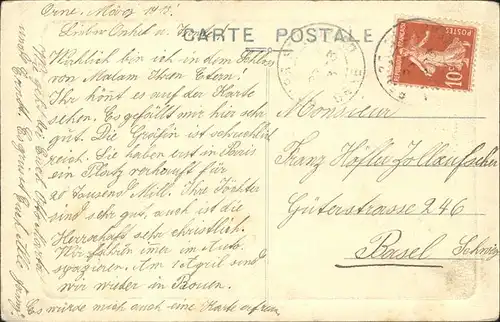 Orne, März 1913!
CARTE POSTALE
Lieber Onkel u. Tante!
Wirklich bin ich in dem Schloss
von Madam Ihren Etern!
Ihr könt es auf der Karte
sehen. Es gefällt mir hier sehr
gut. Die Gräfin ist schrecklich
reich. Sie haben erst in Paris
ein Platz verkauft für
20 tausend Mill. Ihre Töchter
sind sehr gut, auch ist die
Herrschaft sehr christlich.
Wir fahren imer im Auto
spazieren. Am 1 April sind
wir wieder in Rouen.
Es würde mich auch eine Karte erfreun
Wie geht es den
Es grüsst Euch alle
POSTES
REPUBLIQUE FRANÇAISE
10
Monsieur
Franz Höfler Zollaufseher
Güterstrasse 246
Basel Schweiz